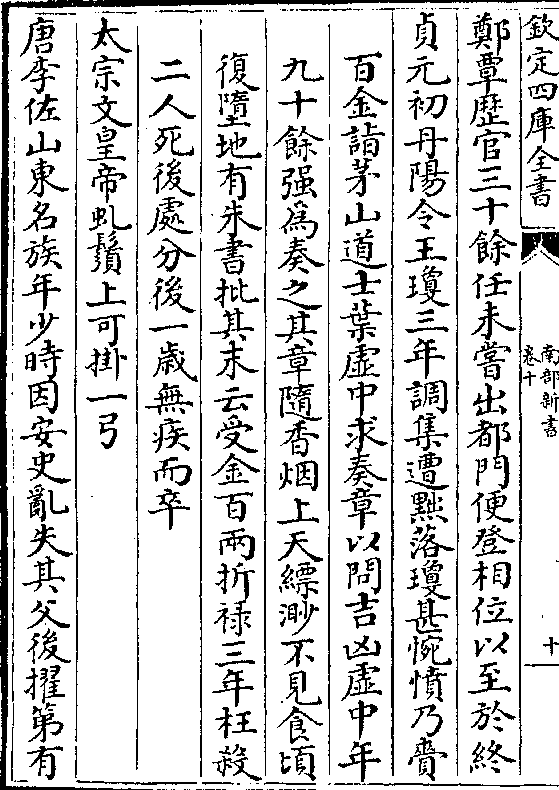 欽定四庫全書
南部新書
卷十
十
鄭覃歷官三十餘任未嘗出都門便登相位以至於終
貞元初丹陽令王瓊三年調集遭黜落瓊甚惋憤乃賫
百金詣茅山道士葉虛中求奏章以問吉凶虛中年
九十餘强為奏之其章隨香烟上天縹渺不見食頃
復墮地有朱書批其末云受金百兩折禄三年枉殺
二人死後處分後一歲無疾而卒
太宗文皇帝虬鬚上可掛一弓
唐李佐山東名族年少時因安史亂失其父後擢第有